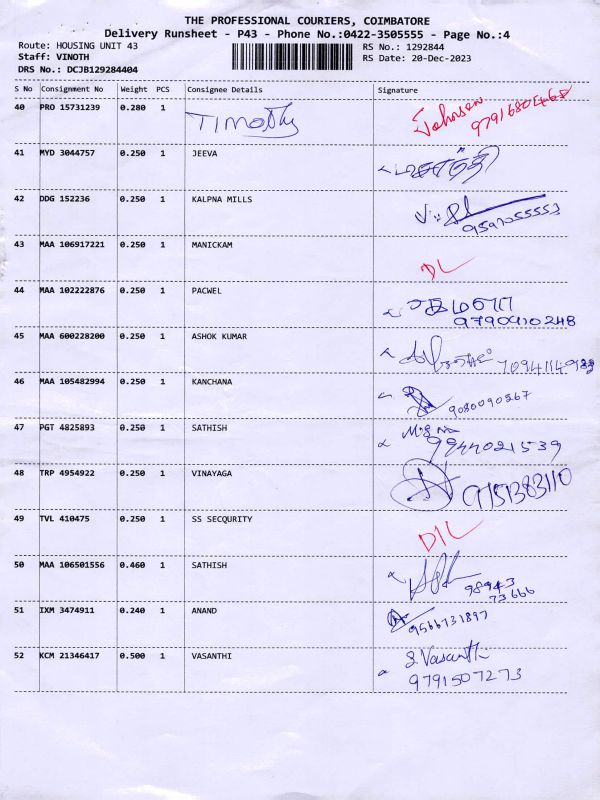 THE PROFESSIONAL COURIERS, COIMBATORE
Delivery Runsheet - P43 - Phone No.:0422-3505555 - Page No.:4
Route: HOUSING UNIT 43 RS No.: 1292844
Staff: VINOTH RS Date: 20-Dec-2023
DRS No.: DCJB129284404
S No Consignment No Weight PCS Consignee Details Signature
40 PRO 15731239 0.280 1 Timothy Johnson
41 MYD 3044757 0.250 1 JEEVA
42 DDG 152236 0.250 1 KALPNA MILLS
9597055553
43 MAA 106917221 0.250 1 MANICKAM DL
44 MAA 102222876 0.250 1 PACWEL
9790410248
45 MAA 600228200 0.250 1 ASHOK KUMAR
46 MAA 105482994 0.250 1 KANCHANA 9080090867
47 PGT 4825893 0.250 1 SATHISH
9944021539
48 TRP 4954922 0.250 1 VINAYAGA 9751383110
49 TVL 410475 0.250 1 SS SECQURITY D/L
50 MAA 106501556 0.460 1 SATHISH 98943
73666
51 IXM 3474911 0.240 1 ANAND 9566731897
52 KCM 21346417 0.500 1 VASANTHI S. Vasanthi
9791507273